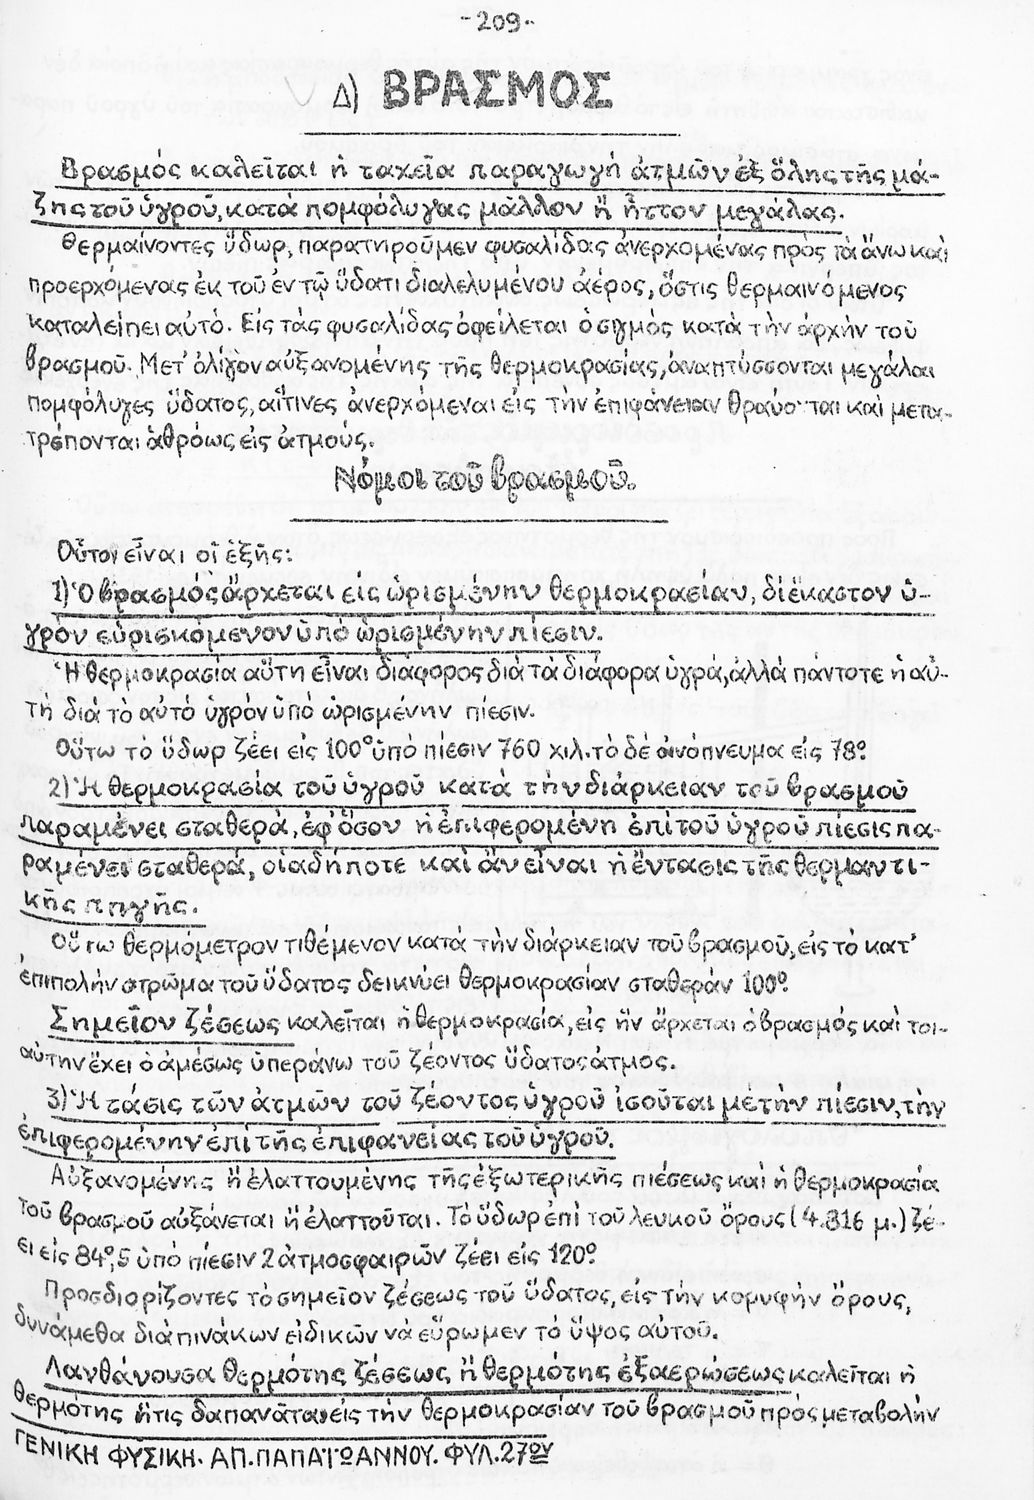 -209-
Δ) ΒΡΑΣΜΟΣ
Βρασμός καλεῖται ἡ ταχεῖα παραγωγή ἀτμῶν ἐξ ὅλης τῆς μά-
ζης τοῦ ὑγροῦ, κατά πομφόλυγας μᾶλλον ἤ ἧττον μεγάλας.
Θερμαίνοντες ὕδωρ, παρατηροῦμεν φυσαλίδας ἀνερχομένας πρός τά ἄνω καί
προερχόμενας ἐκ τοῦ ἐν τῷ ὕδατι διαλελυμένου ἀέρος, ὅστις θερμαινόμενος
καταλείπει αὐτό. Εἰς τάς φυσαλίδας ὀφείλεται ὁ σιγμός κατά τήν ἀρχήν τοῦ
βρασμοῦ. Μετ' ὀλίγον αὐξανομένης τῆς θερμοκρασίας, ἀναπτύσσονται μεγάλαι
πομφόλυγες ὕδατος, αἵτινες ἀνερχόμεναι εἰς τήν ἐπιφάνειαν θραύονται καί μετα-
τρέπονται ἀθρόως εἰς ἀτμούς.
Νόμοι τοῦ βρασμοῦ.
Οὗτοι εἶναι οἱ ἑξῆς:
1) Ὁ βρασμός ἄρχεται εἰς ὡρισμένην θερμοκρασίαν, δι' ἕκαστον ὑ-
γρόν εὑρισκόμενον ὑπό ὡρισμένην πίεσιν.
Ἡ θερμοκρασία αὕτη εἶναι διάφορος διά τά διάφορα ὑγρά, ἀλλά πάντοτε ἡ αὐ-
τή διά τό αὐτό ὑγρόν ὑπό ὡρισμένην πίεσιν.
Οὕτω τό ὕδωρ ζέει εἰς 100° ὑπό πίεσιν 760 χιλ. τό δέ οἰνόπνευμα εἰς 78°.
2) Ἡ θερμοκρασία τοῦ ὑγροῦ κατά τήν διάρκειαν τοῦ βρασμοῦ
παραμένει σταθερά, ἐφ' ὅσον ἡ ἐπιφερομένη ἐπί τοῦ ὑγροῦ πίεσις πα-
ραμένει σταθερά, οἱαδήποτε καί ἄν εἶναι ἡ ἔντασις τῆς θερμαντι-
κῆς πηγῆς.
Οὕτω θερμόμετρον τιθέμενον κατά τήν διάρκειαν τοῦ βρασμοῦ, εἰς τό κατ'
ἐπιπολήν στρῶμα τοῦ ὕδατος δεικνύει θερμοκρασίαν σταθεράν 100°.
Σημεῖον ζέσεως καλεῖται ἡ θερμοκρασία, εἰς ἥν ἄρχεται ὁ βρασμός καί τοι-
αύτην ἔχει ὁ ἀμέσως ὑπεράνω τοῦ ζέοντος ὕδατος ἀτμος.
3) Ἡ τάσις τῶν ἀτμῶν τοῦ ζέοντος ὑγροῦ ἰσοῦται μέ τήν πίεσιν, τήν
ἐπιφερομένην ἐπί τῆς ἐπιφανείας τοῦ ὑγροῦ.
Αὐξανομένης ἤ ἐλαττουμένης τῆς ἐξωτερικῆς πιέσεως καί ἡ θερμοκρασία
τοῦ βρασμοῦ αὐξάνεται ἤ ἐλαττοῦται. Τό ὕδωρ ἐπί τοῦ λευκοῦ ὄρους (4.816 μ.) ζέ-
ει εἰς 84°,5 ὑπό πίεσιν 2 ἀτμοσφαιρῶν ζέει εἰς 120°.
Προσδιορίζοντες τό σημεῖον ζέσεως τοῦ ὕδατος, εἰς τήν κορυφήν ὄρους,
δυνάμεθα διά πινάκων εἰδικῶν νά εὕρωμεν τό ὕψος αὐτοῦ.
Λανθάνουσα θερμότης ζέσεως ἤ θερμότης ἐξαερώσεως καλεῖται ἡ
θερμότης ἥτις δαπανᾶται εἰς τήν θερμοκρασίαν τοῦ βρασμοῦ πρός μεταβολήν
ΓΕΝΙΚΗ ΦΥΣΙΚΗ. ΑΠ. ΠΑΠΑΪΩΑΝΝΟΥ. ΦΥΛ. 27ον